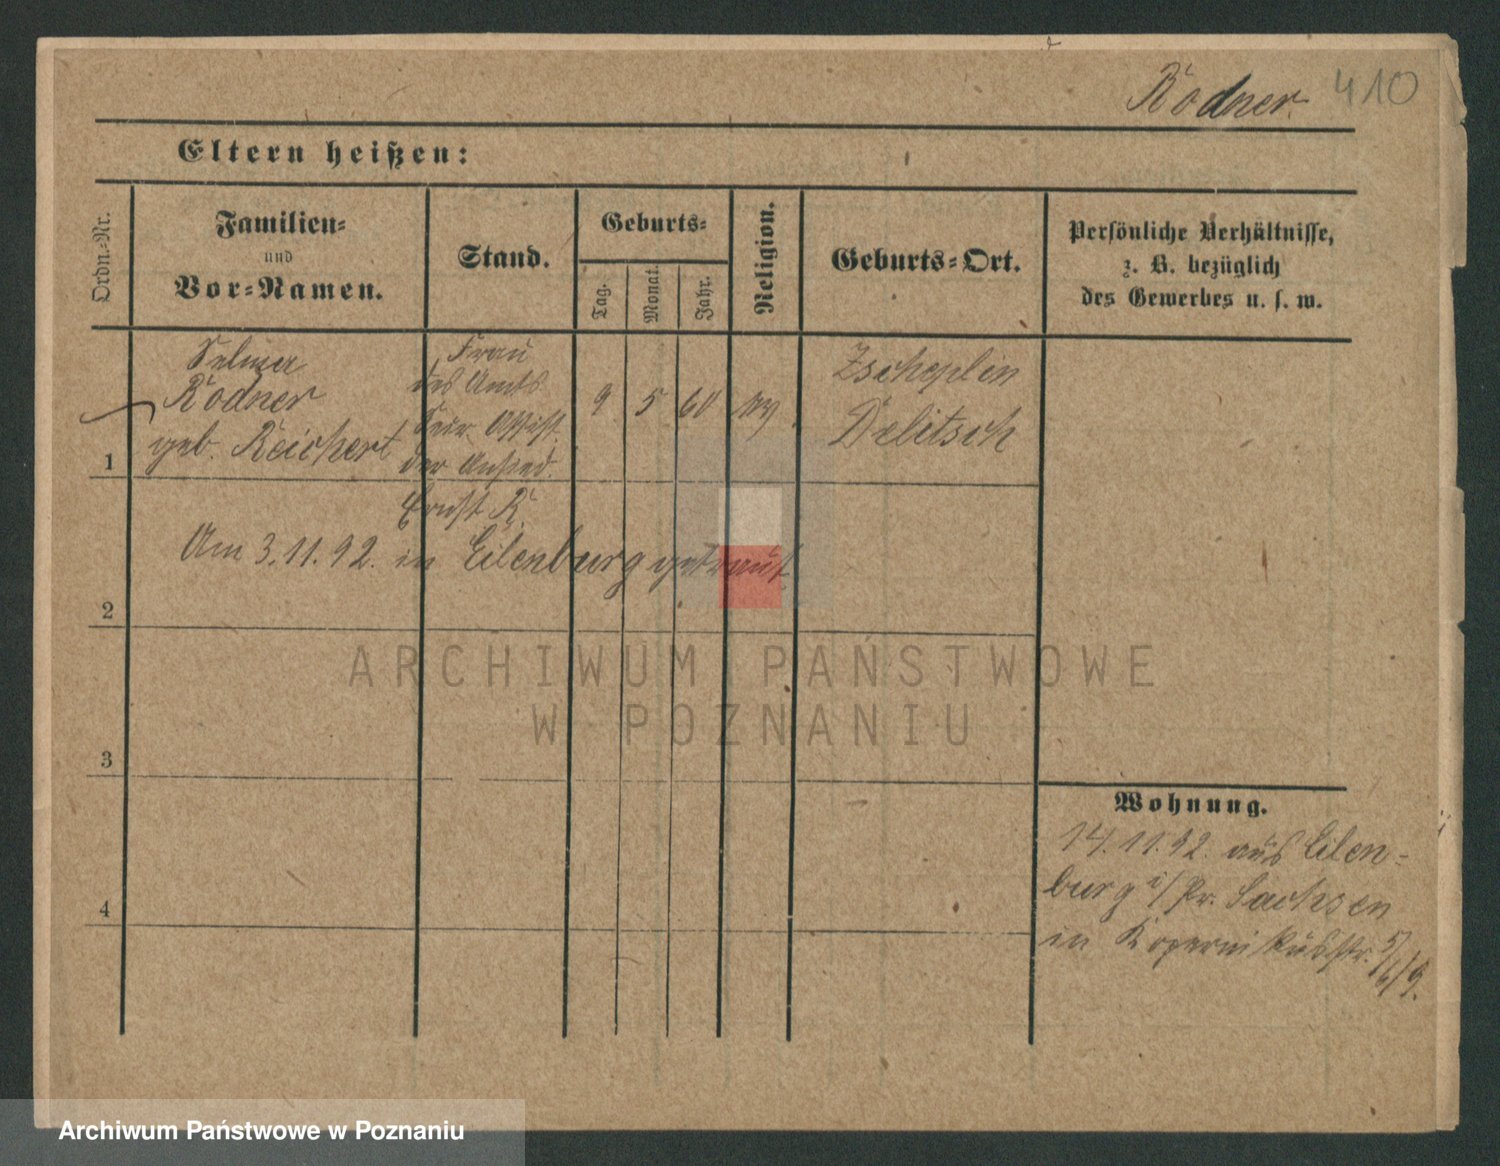 Rodner. 410
Eltern heißen:
Ordn.-Nr.
Familien-
und
Vor-Namen.
Stand.
Geburts-
Tag.
Monat.
Jahr.
Religion.
Geburts-Ort.
Persönliche Verhältnisse,
z. B. bezüglich
des Gewerbes u. s. w.
1
Selma
Rodner
geb. Reichert
Frau
des Amts
Assist.
der
Ernst R.
9 5 60 ev
Zscheplin
Delitsch
Am 3.11.92. in Eilenburg getraut
2
3
4
Wohnung.
14.11.92. aus Eilen-
burg i/Pr. Sachsen
in Kopernikusstr. 5/6/9.
ARCHIWUM PAŃSTWOWE
W POZNANIU
Archiwum Państwowe w Poznaniu